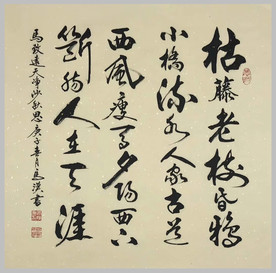 枯藤老樹昏鴉
小橋流水人家古道
西風瘦馬夕陽西下
斷腸人在天涯
馬致遠天净沙秋思庚子春月馬漢書